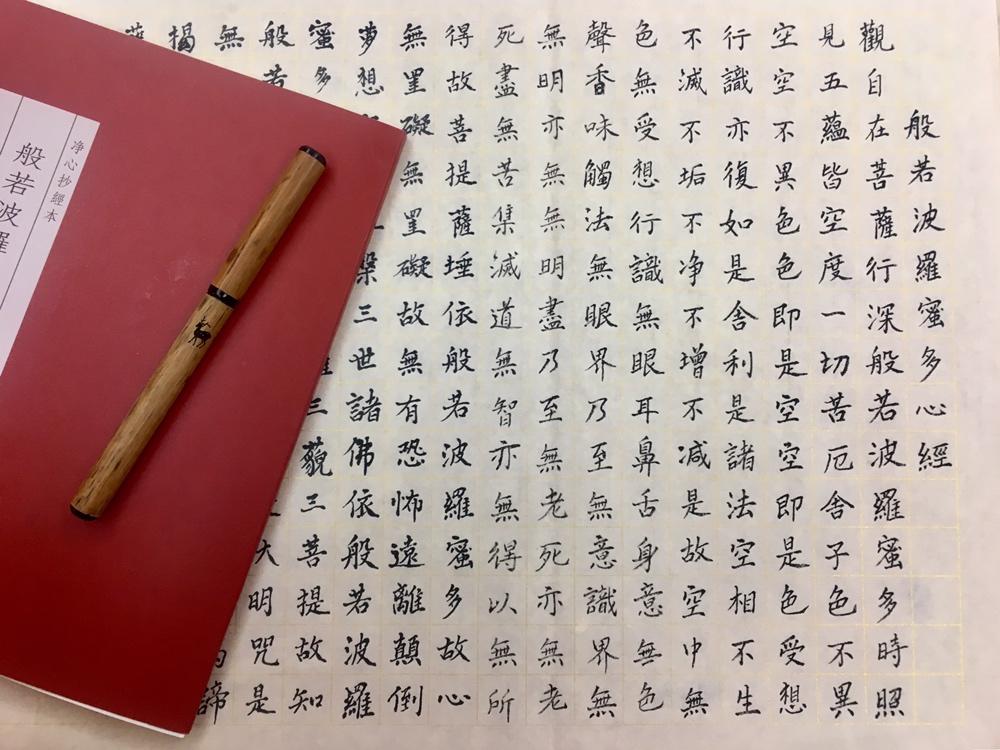 般若波羅蜜多心經
觀自在菩薩行深般若波羅蜜多時照
見五蘊皆空度一切苦厄舍子色不異
空空不異色色即是空空即是色受想
行識亦復如是舍利是諸法空相不生
不滅不垢不净不增不减是故空中無
色無受想行識無眼耳鼻舌身意無色
聲香味觸法無眼界乃至無意識界無
無明亦無無明盡乃至無老死亦無老
死盡無苦集滅道無智亦無得以無所
得故菩提薩埵依般若波羅蜜多故心
無罣礙無罣礙故無有恐怖遠離顛倒
夢想槃三世諸佛依般若波羅
蜜多三藐三菩提故知
般若大明咒是
無諦
揭
净心抄經本
般若波羅